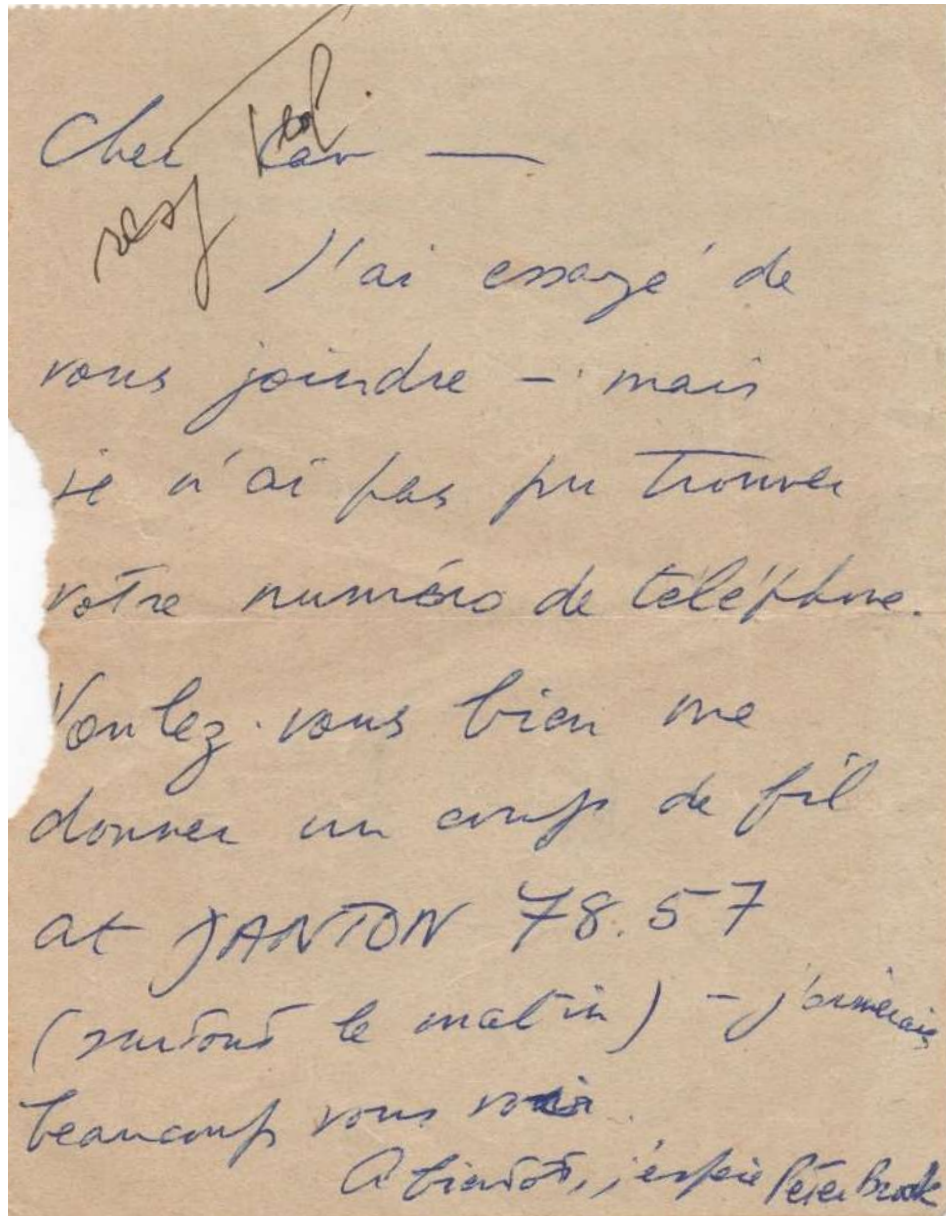 Cher
J'ai essayé de
vous joindre – mais
je n'ai pas pu trouver
votre numéro de téléphone.
Voulez-vous bien me
donner un coup de fil
at DANTON 78.57
(surtout le matin) – j'aimerais
beaucoup vous voir.
A bientôt, j'espère Peter Brook